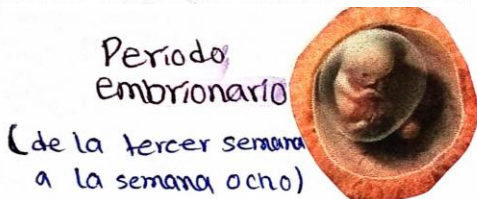 Periodo
embrionario
(de la tercer semana
a la semana ocho)